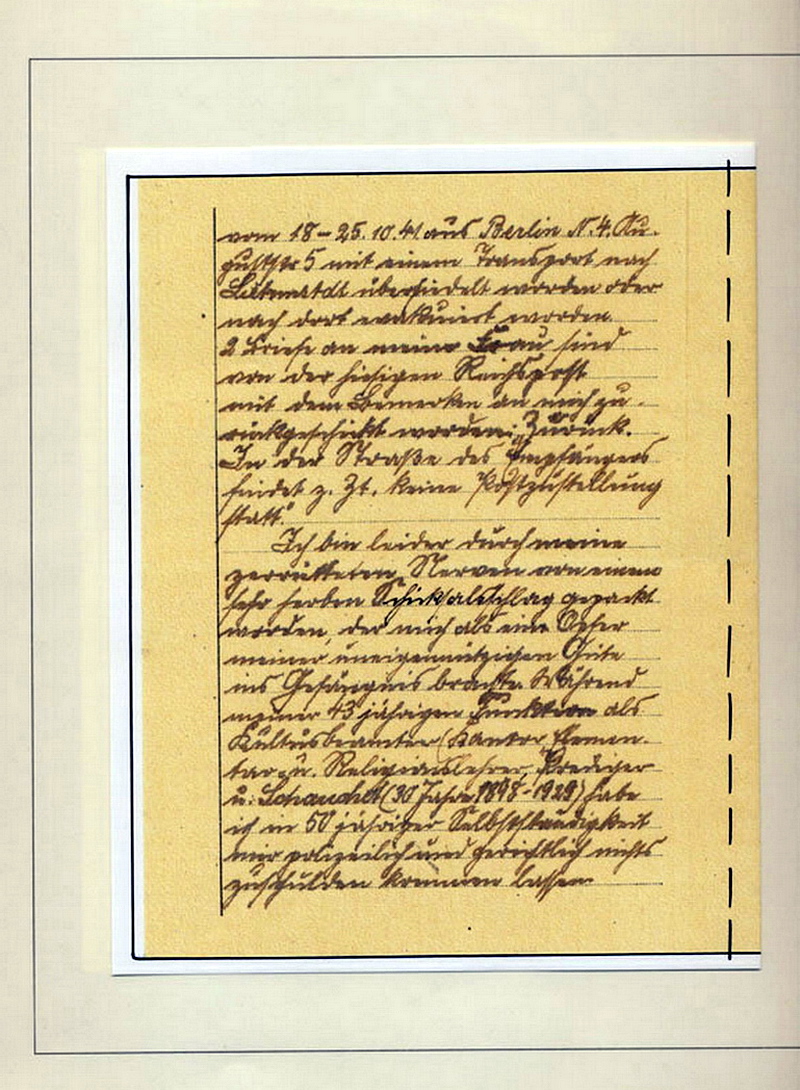 vom 18–25.10.41 aus Berlin N.4. Au-
guststr 5 mit einem Transport nach
Litzmstdt übersiedelt worden oder
nach dort evakuiert worden.
2 Briefe an meine Frau sind
von der hiesigen Reichspost
mit dem Bemerken an mich zu-
rückgeschickt worden: „Zurück.
In der Straße des Empfängers
findet z. Zt. keine Postzustellung
statt."
Ich bin leider durch meine
zerrütteten Nerven von einem
sehr herben Schicksalsschlag gepackt
worden, der mich als eine Opfer
meiner uneigennützigen Güte
ins Gefängnis brachte. Während
meiner 43 jährigen Funktion als
Kultusbeamter (Kantor, Elemen-
tar u. Religionslehrer, Prediger
u. Schauchet (30 Jahre 1898–1929) habe
ich in 50 jähriger Selbstständigkeit
mir polizeilich und gerichtlich nichts
zuschulden kommen lassen